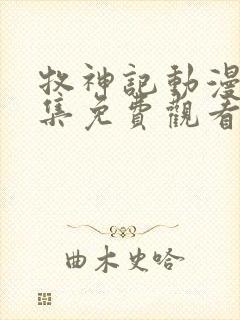 牧神記動漫
集免費觀看
曲木史哈